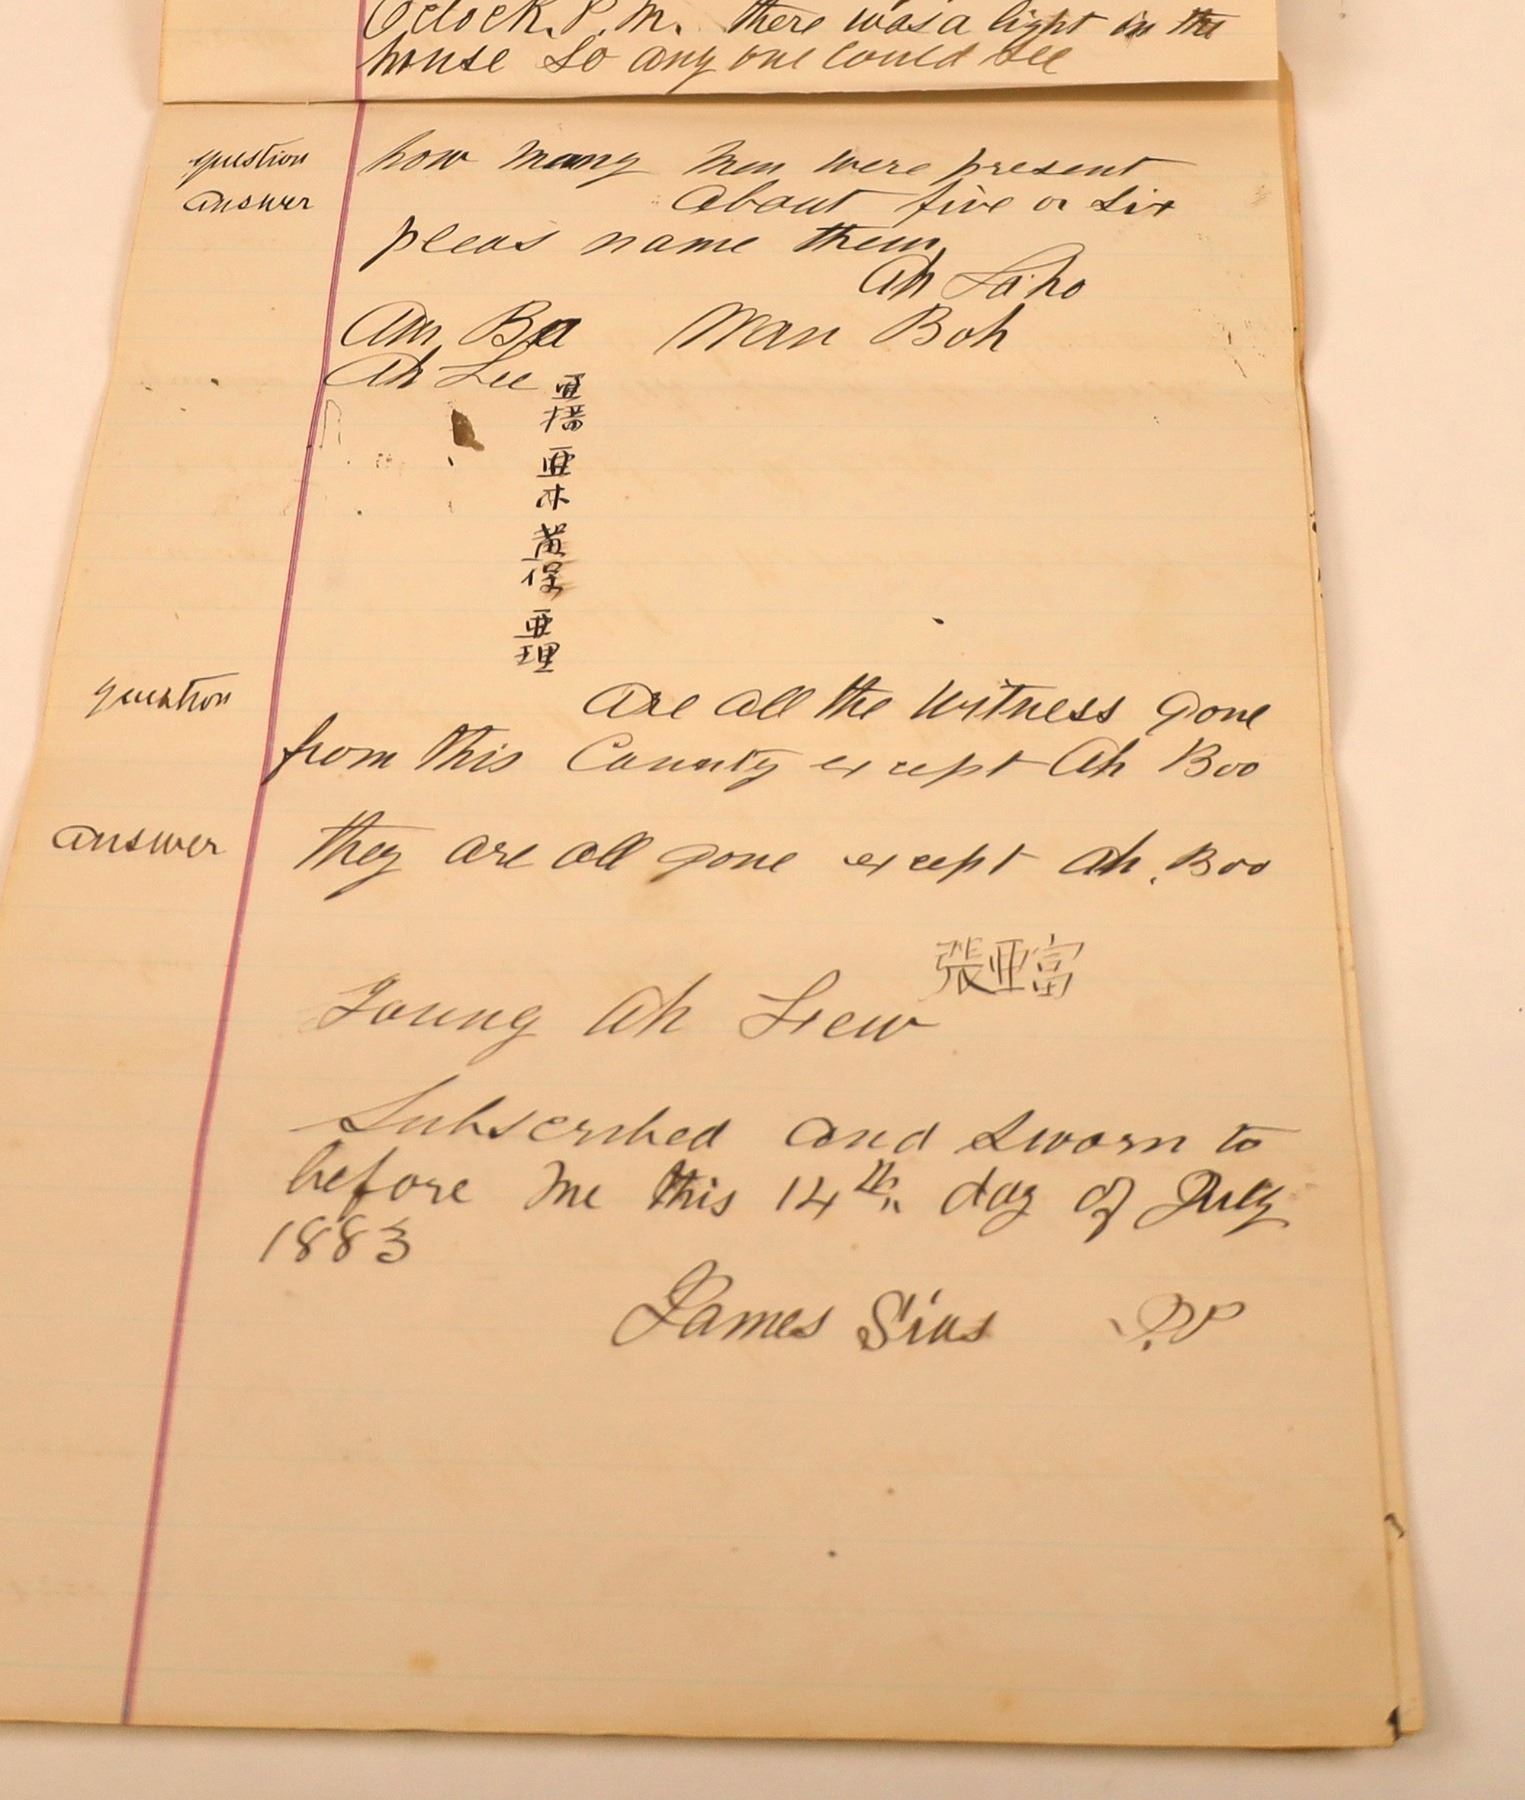 O'clock. P.M. there was a light in the
house So any one could see
question how many men were present
answer about five or six
pleas name them
Ah Saho
Am Ba Wan Boh
Ah Lee
亜
播
亜
木
黃
保
亜
理
question are all the Witness gone
from this County except Ah Boo
answer they are all gone except Ah. Boo
張亜富
Young Ah Liew
Subscribed and Sworn to
before me this 14th day of July
1883
James Sias